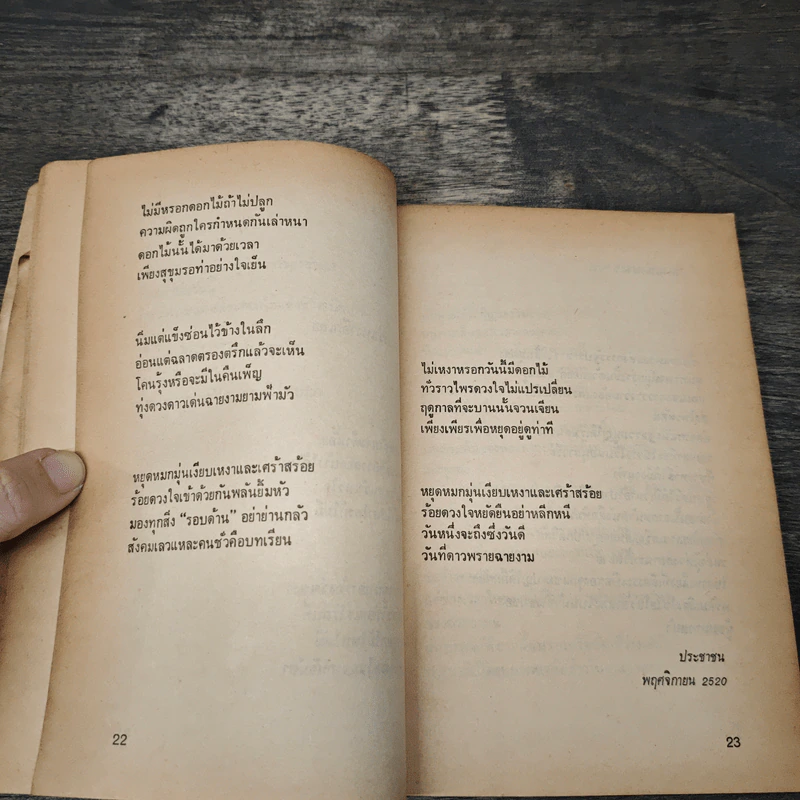 ไม่มีหรอกดอกไม้ถ้าไม่ปลูก
ความผิดถูกใครกำหนดกันเล่าหนา
ดอกไม้นั้นได้มาด้วยเวลา
เพียงสุขุมรอท่าอย่างใจเย็น
นิ่มแต่แข็งซ่อนไว้ข้างในลึก
อ่อนแต่ฉลาดตรองตรึกแล้วจะเห็น
โคนรุ้งหรือจะมีในคืนเพ็ญ
ทุ่งดวงดาวเด่นฉายงามยามฟ้ามัว
หยุดหมกมุ่นเงียบเหงาและเศร้าสร้อย
ร้อยดวงใจเข้าด้วยกันพลันยิ้มหัว
มองทุกสิ่ง “รอบด้าน” อย่าย่านกลัว
สังคมเลวแหละคนชั่วคือบทเรียน
22
ไม่เหงาหรอกวันนี้มีดอกไม้
ทั่วราวไพรดวงใจไม่แปรเปลี่ยน
ฤดูกาลที่จะบานนั้นจวนเจียน
เพียงเพียรเพื่อหยุดอยู่ดูท่าที
หยุดหมกมุ่นเงียบเหงาและเศร้าสร้อย
ร้อยดวงใจหยัดยืนอย่าหลีกหนี
วันหนึ่งจะถึงซึ่งวันดี
วันที่ดาวพรายฉายงาม
ประชาชน
พฤศจิกายน 2520
23